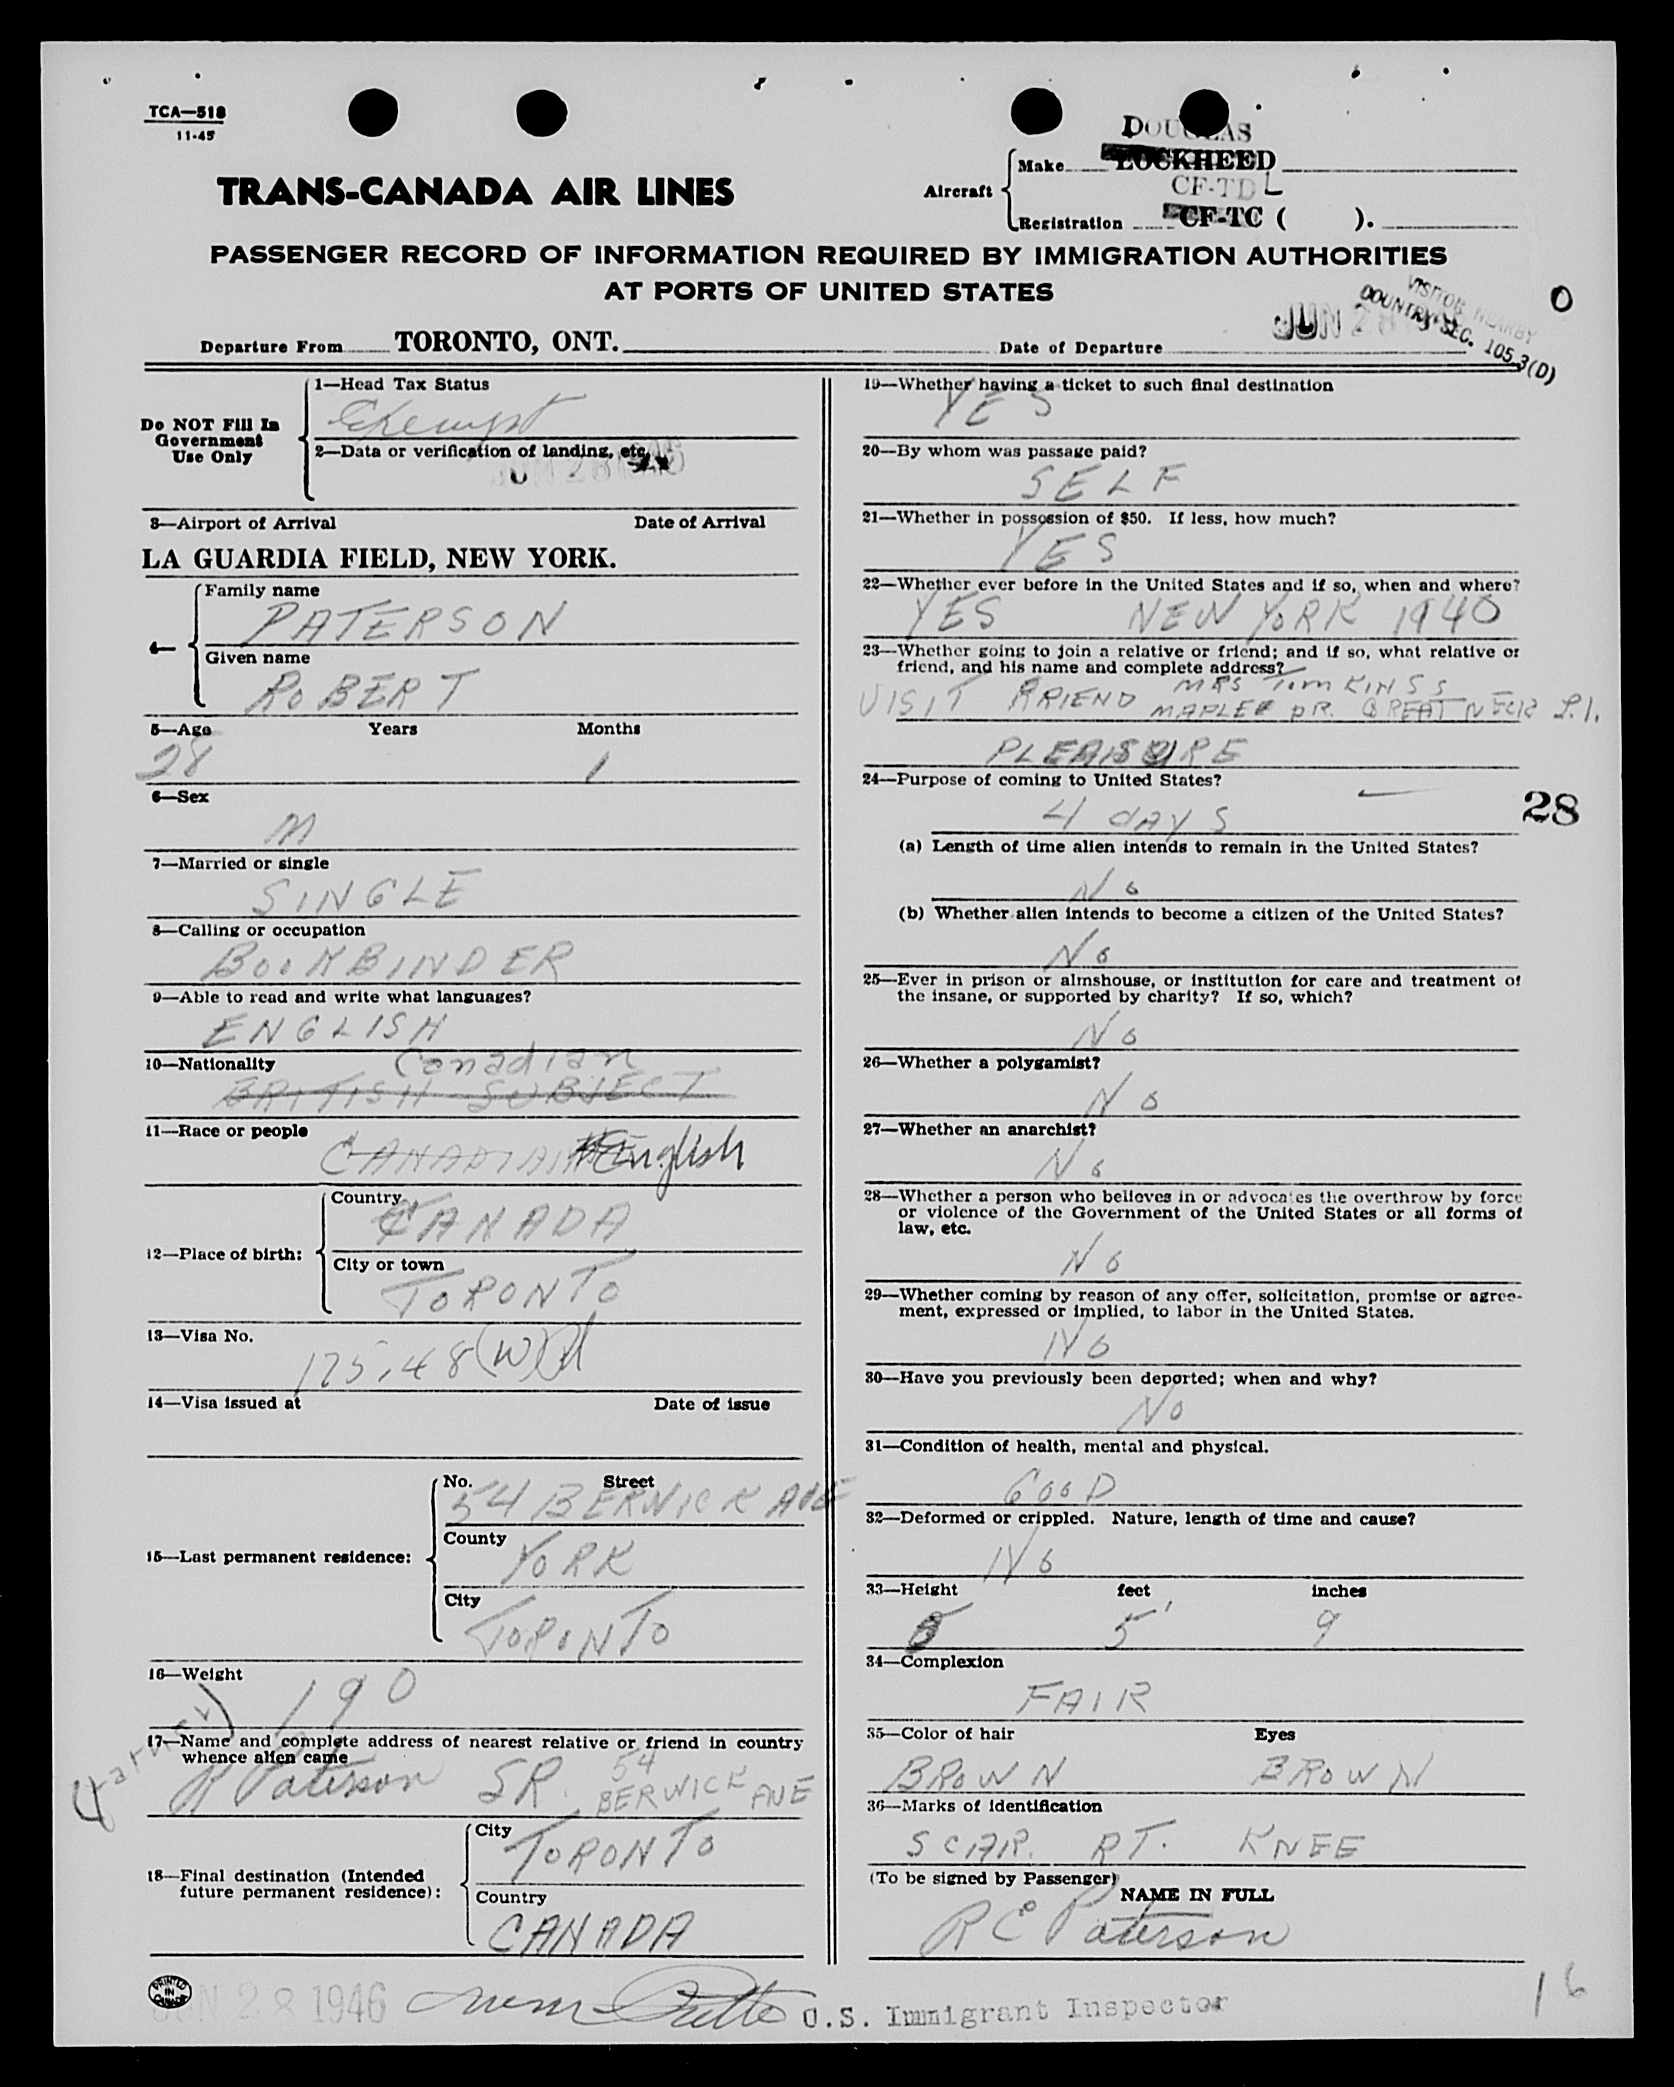 TCA—518
11-45
DOUGLAS
TRANS-CANADA AIR LINES
Aircraft
Make LOCKHEED
CF-TDL
Registration CF-TC ( ).
PASSENGER RECORD OF INFORMATION REQUIRED BY IMMIGRATION AUTHORITIES
AT PORTS OF UNITED STATES
VISITOR NEARBY
COUNTRY SEC. 105.3(D)
O
Departure From TORONTO, ONT.
Date of Departure JUN 28
Do NOT Fill In
Government
Use Only
1—Head Tax Status
Exempt
2—Data or verification of landing, etc.
JUN 28 1946
3—Airport of Arrival Date of Arrival
LA GUARDIA FIELD, NEW YORK.
4—
Family name
PATERSON
Given name
ROBERT
5—Age Years Months
28 1
6—Sex
M
7—Married or single
SINGLE
8—Calling or occupation
BOOKBINDER
9—Able to read and write what languages?
ENGLISH
10—Nationality Canadian
BRITISH SUBJECT
11—Race or people
CANADIAN English
12—Place of birth:
Country
CANADA
City or town
TORONTO
13—Visa No.
175.48 (W)
14—Visa issued at Date of issue
15—Last permanent residence:
No. Street
54 BERWICK AVE
County
YORK
City
TORONTO
16—Weight
190
17—Name and complete address of nearest relative or friend in country
whence alien came
(Father)
R Paterson SR. 54
BERWICK AVE
18—Final destination (Intended
future permanent residence):
City
TORONTO
Country
CANADA
19—Whether having a ticket to such final destination
YES
20—By whom was passage paid?
SELF
21—Whether in possession of $50. If less, how much?
YES
22—Whether ever before in the United States and if so, when and where?
YES NEW YORK 1940
23—Whether going to join a relative or friend; and if so, what relative or
friend, and his name and complete address?
VISIT FRIEND MRS TOMKINSS
MAPLE DR. GREAT NECK L.I.
PLEASURE
24—Purpose of coming to United States?
4 DAYS
28
(a) Length of time alien intends to remain in the United States?
No
(b) Whether alien intends to become a citizen of the United States?
No
25—Ever in prison or almshouse, or institution for care and treatment of
the insane, or supported by charity? If so, which?
No
26—Whether a polygamist?
No
27—Whether an anarchist?
No
28—Whether a person who believes in or advocates the overthrow by force
or violence of the Government of the United States or all forms of
law, etc.
No
29—Whether coming by reason of any offer, solicitation, promise or agree-
ment, expressed or implied, to labor in the United States.
No
30—Have you previously been deported; when and why?
No
31—Condition of health, mental and physical.
GOOD
32—Deformed or crippled. Nature, length of time and cause?
No
33—Height feet inches
5' 9
34—Complexion
FAIR
35—Color of hair Eyes
BROWN BROWN
36—Marks of identification
SCAR. RT. KNEE
(To be signed by Passenger)
NAME IN FULL
R E Paterson
PRINTED IN CANADA
JUN 28 1946
U.S. Immigrant Inspector
16